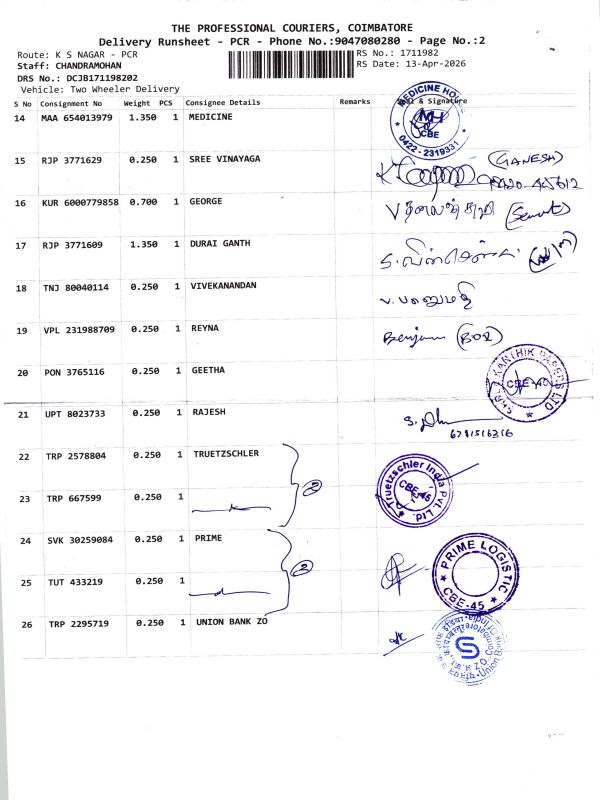 THE PROFESSIONAL COURIERS, COIMBATORE
Delivery Runsheet - PCR - Phone No.:9047080280 - Page No.:2
Route: K S NAGAR - PCR
RS No.: 1711982
Staff: CHANDRAMOHAN
RS Date: 13-Apr-2026
DRS No.: DCJB171198202
Vehicle: Two Wheeler Delivery
S No Consignment No Weight PCS Consignee Details Remarks & Signature
14 MAA 654013979 1.350 1 MEDICINE
MEDICINE HOUSE
MH
CBE
0422-2319331
15 RJP 3771629 0.250 1 SREE VINAYAGA
(GANESH)
16 KUR 6000779858 0.700 1 GEORGE
17 RJP 3771609 1.350 1 DURAI GANTH
18 TNJ 80040114 0.250 1 VIVEKANANDAN
19 VPL 231988709 0.250 1 REYNA
Benjamin
20 PON 3765116 0.250 1 GEETHA
KARTHIK PAPERS
CBE-40
21 UPT 8023733 0.250 1 RAJESH
22 TRP 2578804 0.250 1 TRUETZSCHLER
2
Truetzschler India Pvt. Ltd.
CBE-45
23 TRP 667599 0.250 1
24 SVK 30259084 0.250 1 PRIME
2
PRIME LOGISTIC
CBE-45
25 TUT 433219 0.250 1
26 TRP 2295719 0.250 1 UNION BANK ZO